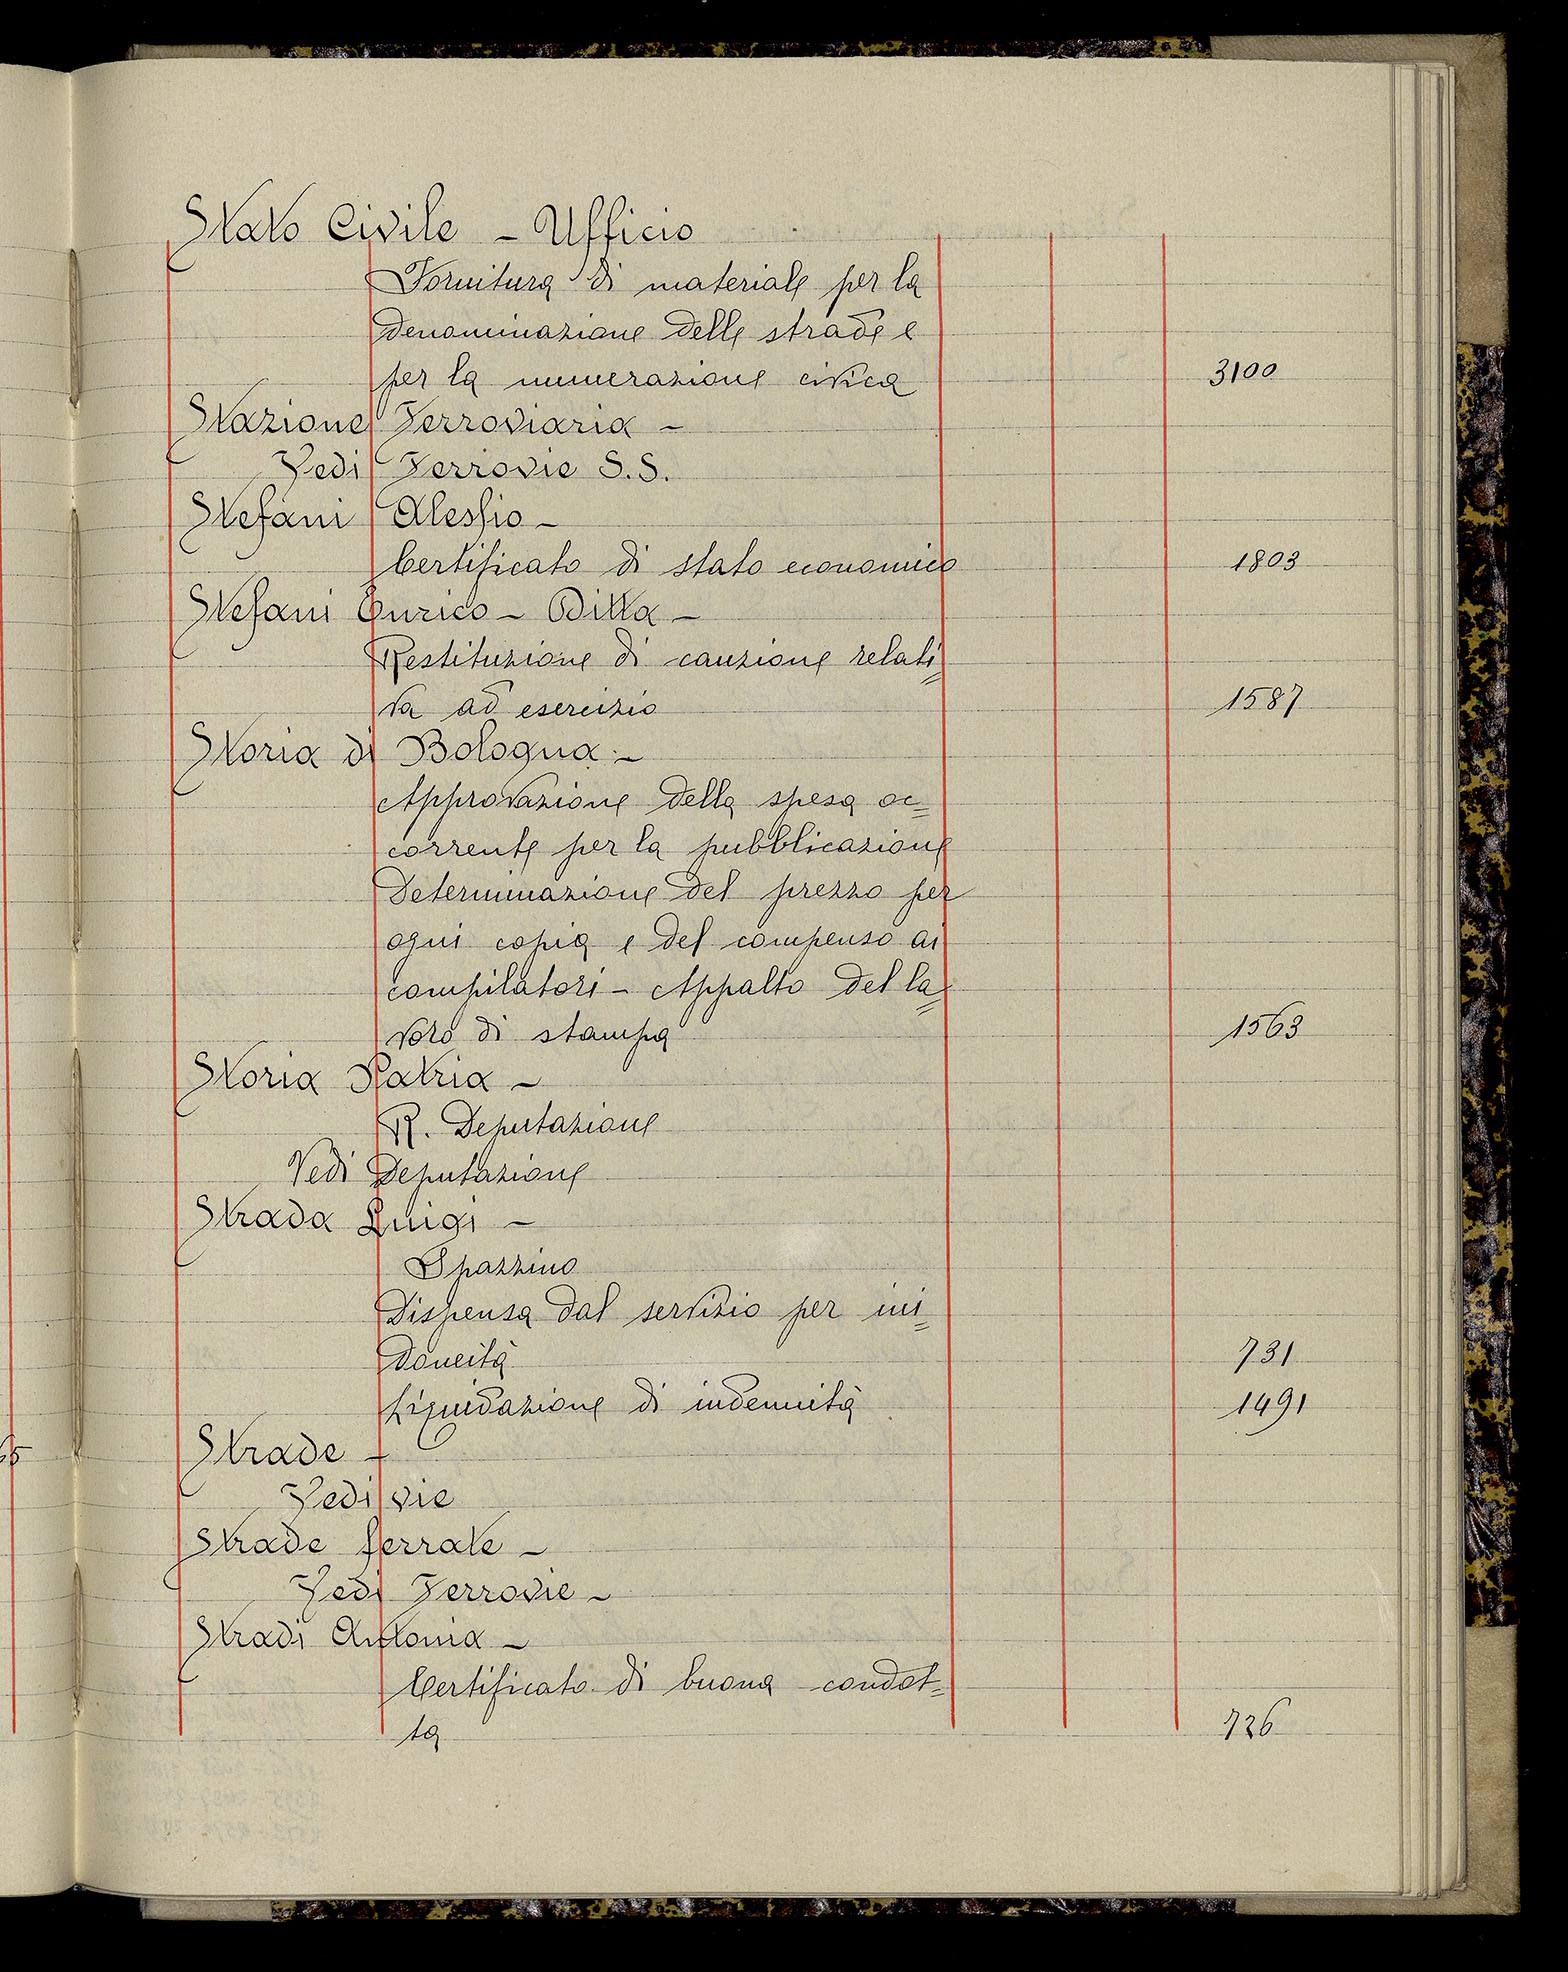 Stato Civile - Ufficio
Fornitura di materiale per la
denominazione delle strade e
per la numerazione civica 3100
Stazione Ferroviaria -
Vedi Ferrovie S.S.
Stefani Alessio -
Certificato di stato economico 1803
Stefani Enrico - Ditta -
Restituzione di cauzione relati=
va ad esercizio 1587
Storia di Bologna -
Approvazione della spesa oc=
corrente per la pubblicazione
Determinazione del prezzo per
ogni copia e del compenso ai
compilatori - Appalto del la=
voro di stampa 1563
Storia Patria -
R. Deputazione
Vedi Deputazione
Strada Luigi -
Spazzino
Dispensa dal servizio per ini=
doneità 731
Liquidazione di indennità 1491
Strade -
Vedi vie
Strade ferrate -
Vedi Ferrovie -
Stradi Antonia -
Certificato di buona condot=
ta 726